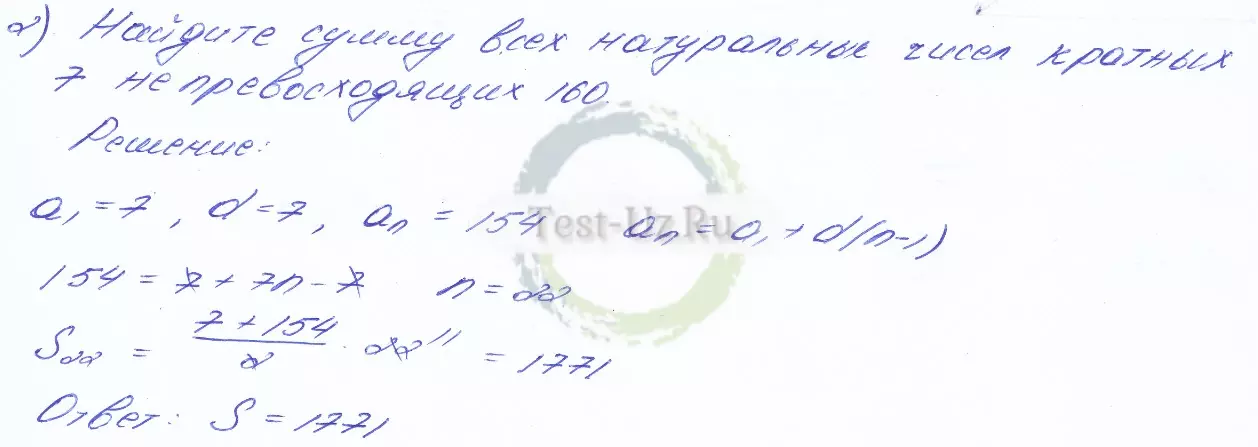 2) Найдите сумму всех натуральные чисел кратных
7 не превосходящих 160.
Решение:
a₁ = 7, d = 7, aₙ = 154 aₙ = a₁ + d(n-1)
154 = 7 + 7n - 7 n = 22
S₂₂ = (7 + 154)/2 · 22 11 = 1771
Ответ: S = 1771
Test-Uz.Ru